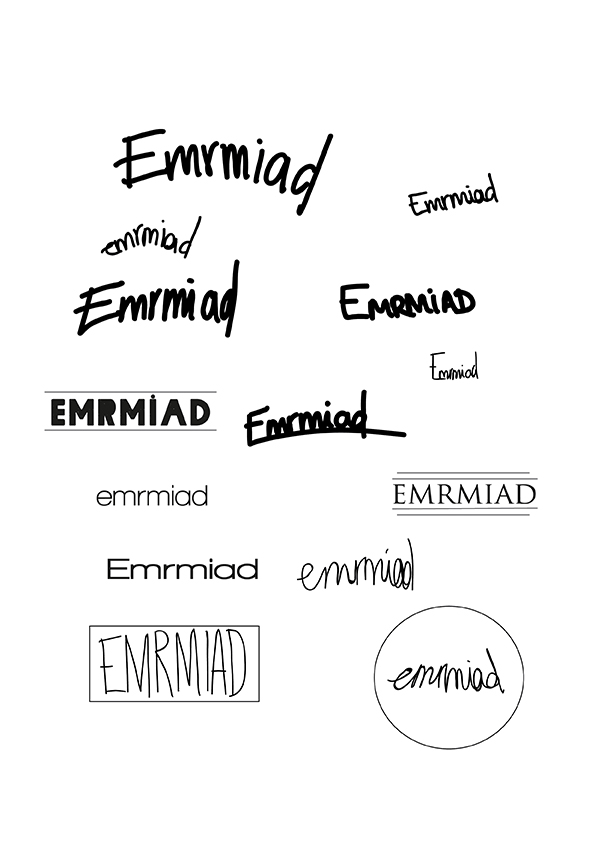 Emrmiad
Emrmiad
emrmiad
Emrmiad
EMRMiAD
Emrmiad
EMRMİAD
Emrmiad
emrmiad
EMRMIAD
Emrmiad
emrmiad
EMRMIAD
emrmiad